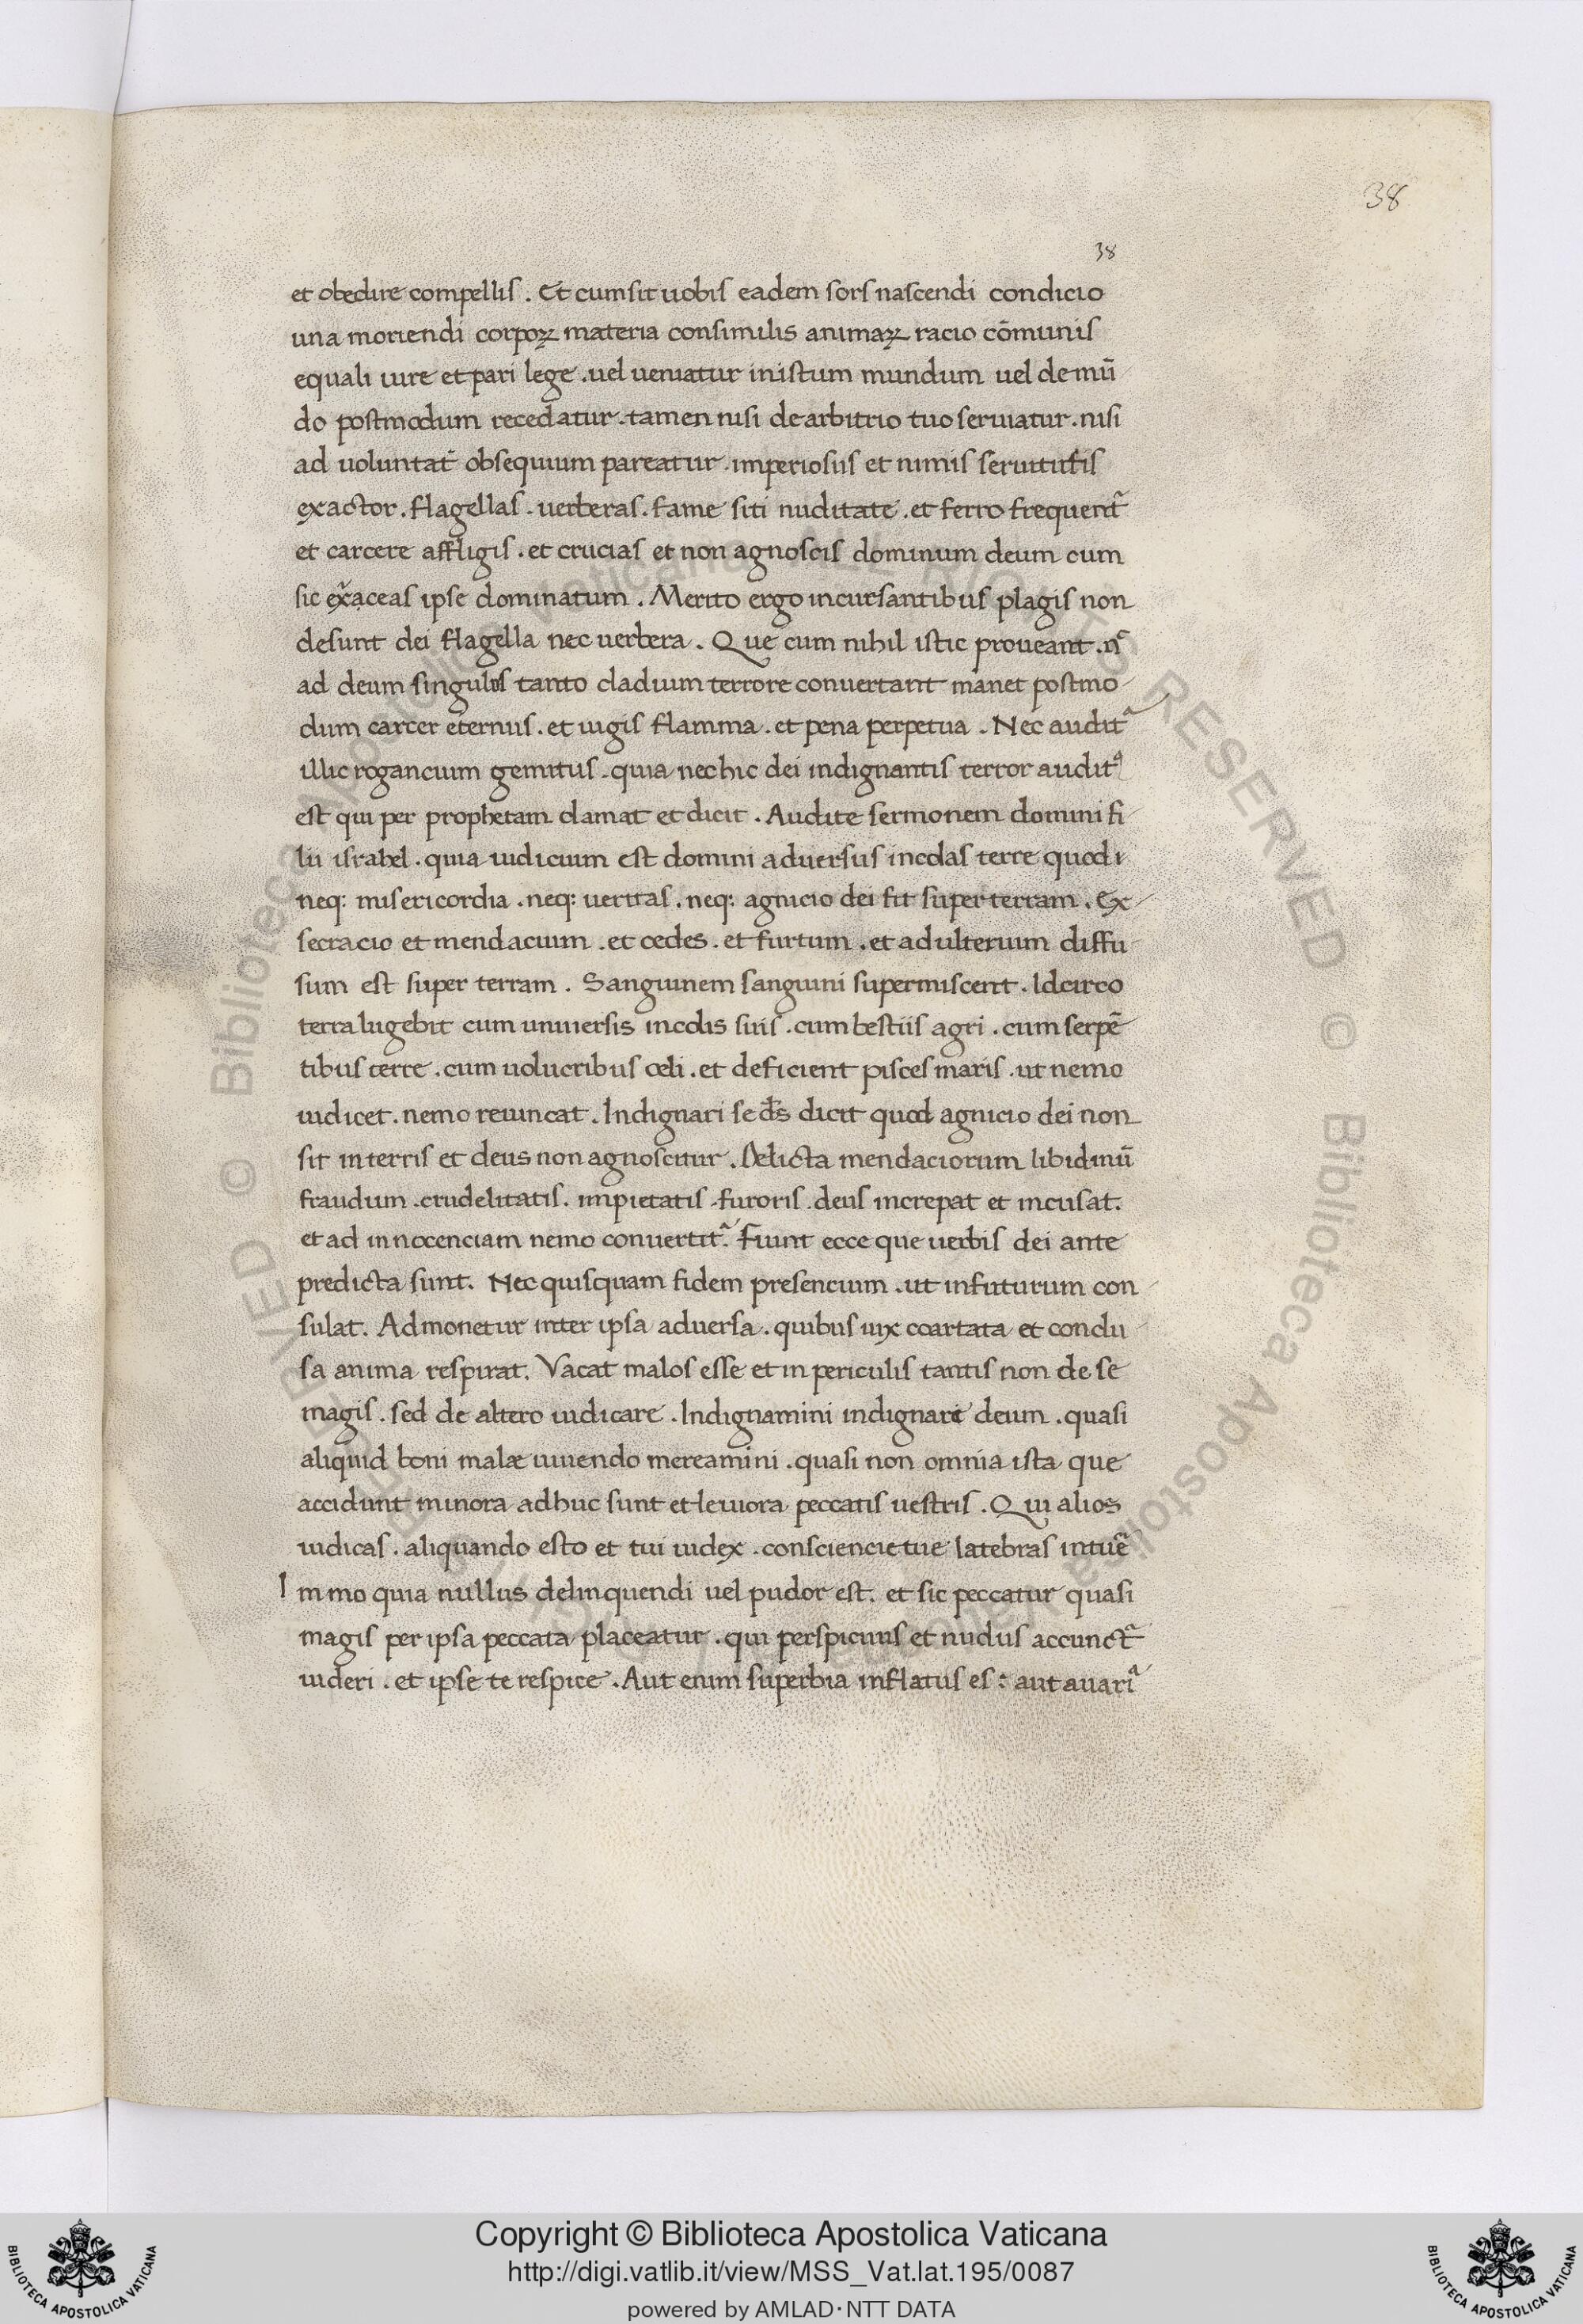 38
38
et obedire compellis . Et cum sit uobis eadem sors nascendi condicio
una moriendi corpoꝝ materia consimilis animaꝝ racio cōmunis
equali iure et pari lege . uel ueniatur in istum mundum uel de mū
do postmodum recedatur . tamen nisi de arbitrio tuo seruiatur . nisi
ad uoluntat̄ obsequium pareatur . imperiosus et nimis seruitutis
exactor . flagellas . uerberas . fame siti nuditate . et ferro frequent᷑
et carcere affligis . et crucias et non agnoscis dominum deum cum
sic ex᷑ceas ipse dominatum . Merito ergo incursantibus plagis non
desunt dei flagella nec uerbera . Que cum nihil istic proueant . nͨ
ad deum singulos tanto cladium terrore conuertant manet postmo
dum carcer eternus . et iugis flamma . et pena perpetua . Nec audit᷑
illic rogancium gemitus . quia nec hic dei indignantis terror auditꝰ
est qui per prophetam clamat et dicit . Audite sermonem domini fi
lii israhel . quia iudicium est domini aduersus incolas terre quod
neq: misericordia . neq: ueritas . neq: agnicio dei fit super terram . Ex
secracio et mendacium . et cedes . et furtum . et adulterium diffu
sum est super terram . Sanguinem sanguini supermiscent . Idcirco
terra lugebit cum uniuersis incolis suis . cum bestiis agri . cum serpē
tibus terre . cum uolucribus celi . et deficient pisces maris . ut nemo
iudicet . nemo reuincat . Indignari se d̄s dicit quod agnicio dei non
sit in terris et deus non agnoscitur . Delicta mendaciorum libidinū
fraudum . crudelitatis . impietatis . furoris . deus increpat et incusat .
et ad innocenciam nemo conuertit᷑ . Fiunt ecce que uerbis dei ante
predicta sunt . Nec quisquam fidem presencium . ut in futurum con
sulat . Admonetur inter ipsa aduersa . quibus uix coartata et conclu
sa anima respirat . Vacat malos esse et in periculis tantis non de se
magis . sed de altero iudicare . Indignamini indignari deum . quasi
aliquid boni malæ uiuendo mereamini . quasi non omnia ista que
accidunt minora adhuc sunt et leuiora peccatis uestris . Qui alios
iudicas . aliquando esto et tui iudex . consciencie tue latebras intuē
Immo quia nullus delinquendi uel pudor est . et sic peccatur quasi
magis per ipsa peccata placeatur . qui perspicuus et nudus accunct᷑
uideri . et ipse te respice . Aut enim superbia inflatus es : aut auariᷓ
Copyright © Biblioteca Apostolica Vaticana
http://digi.vatlib.it/view/MSS_Vat.lat.195/0087
powered by AMLAD·NTT DATA
BIBLIOTECA APOSTOLICA VATICANA
BIBLIOTECA APOSTOLICA VATICANA